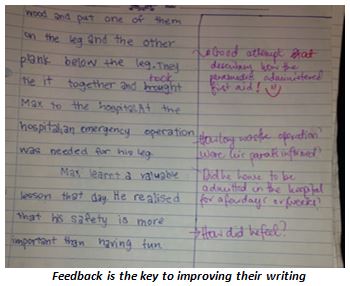 wood and put one of them
on the leg and the other
plank below the leg. They
tie it together and brought
took
Max to the hospital. At the
hospital an emergency operation
was needed for his leg.
Max learnt a valuable
lesson that day. He realised
that his safety is more
important than having fun.
Good attempt
describing how the
paramedics administered
first aid!
How long was the operation?
Were his parents informed?
Did he have to be
admitted in the hospital
for a few days or weeks?
How did he feel?
Feedback is the key to improving their writing